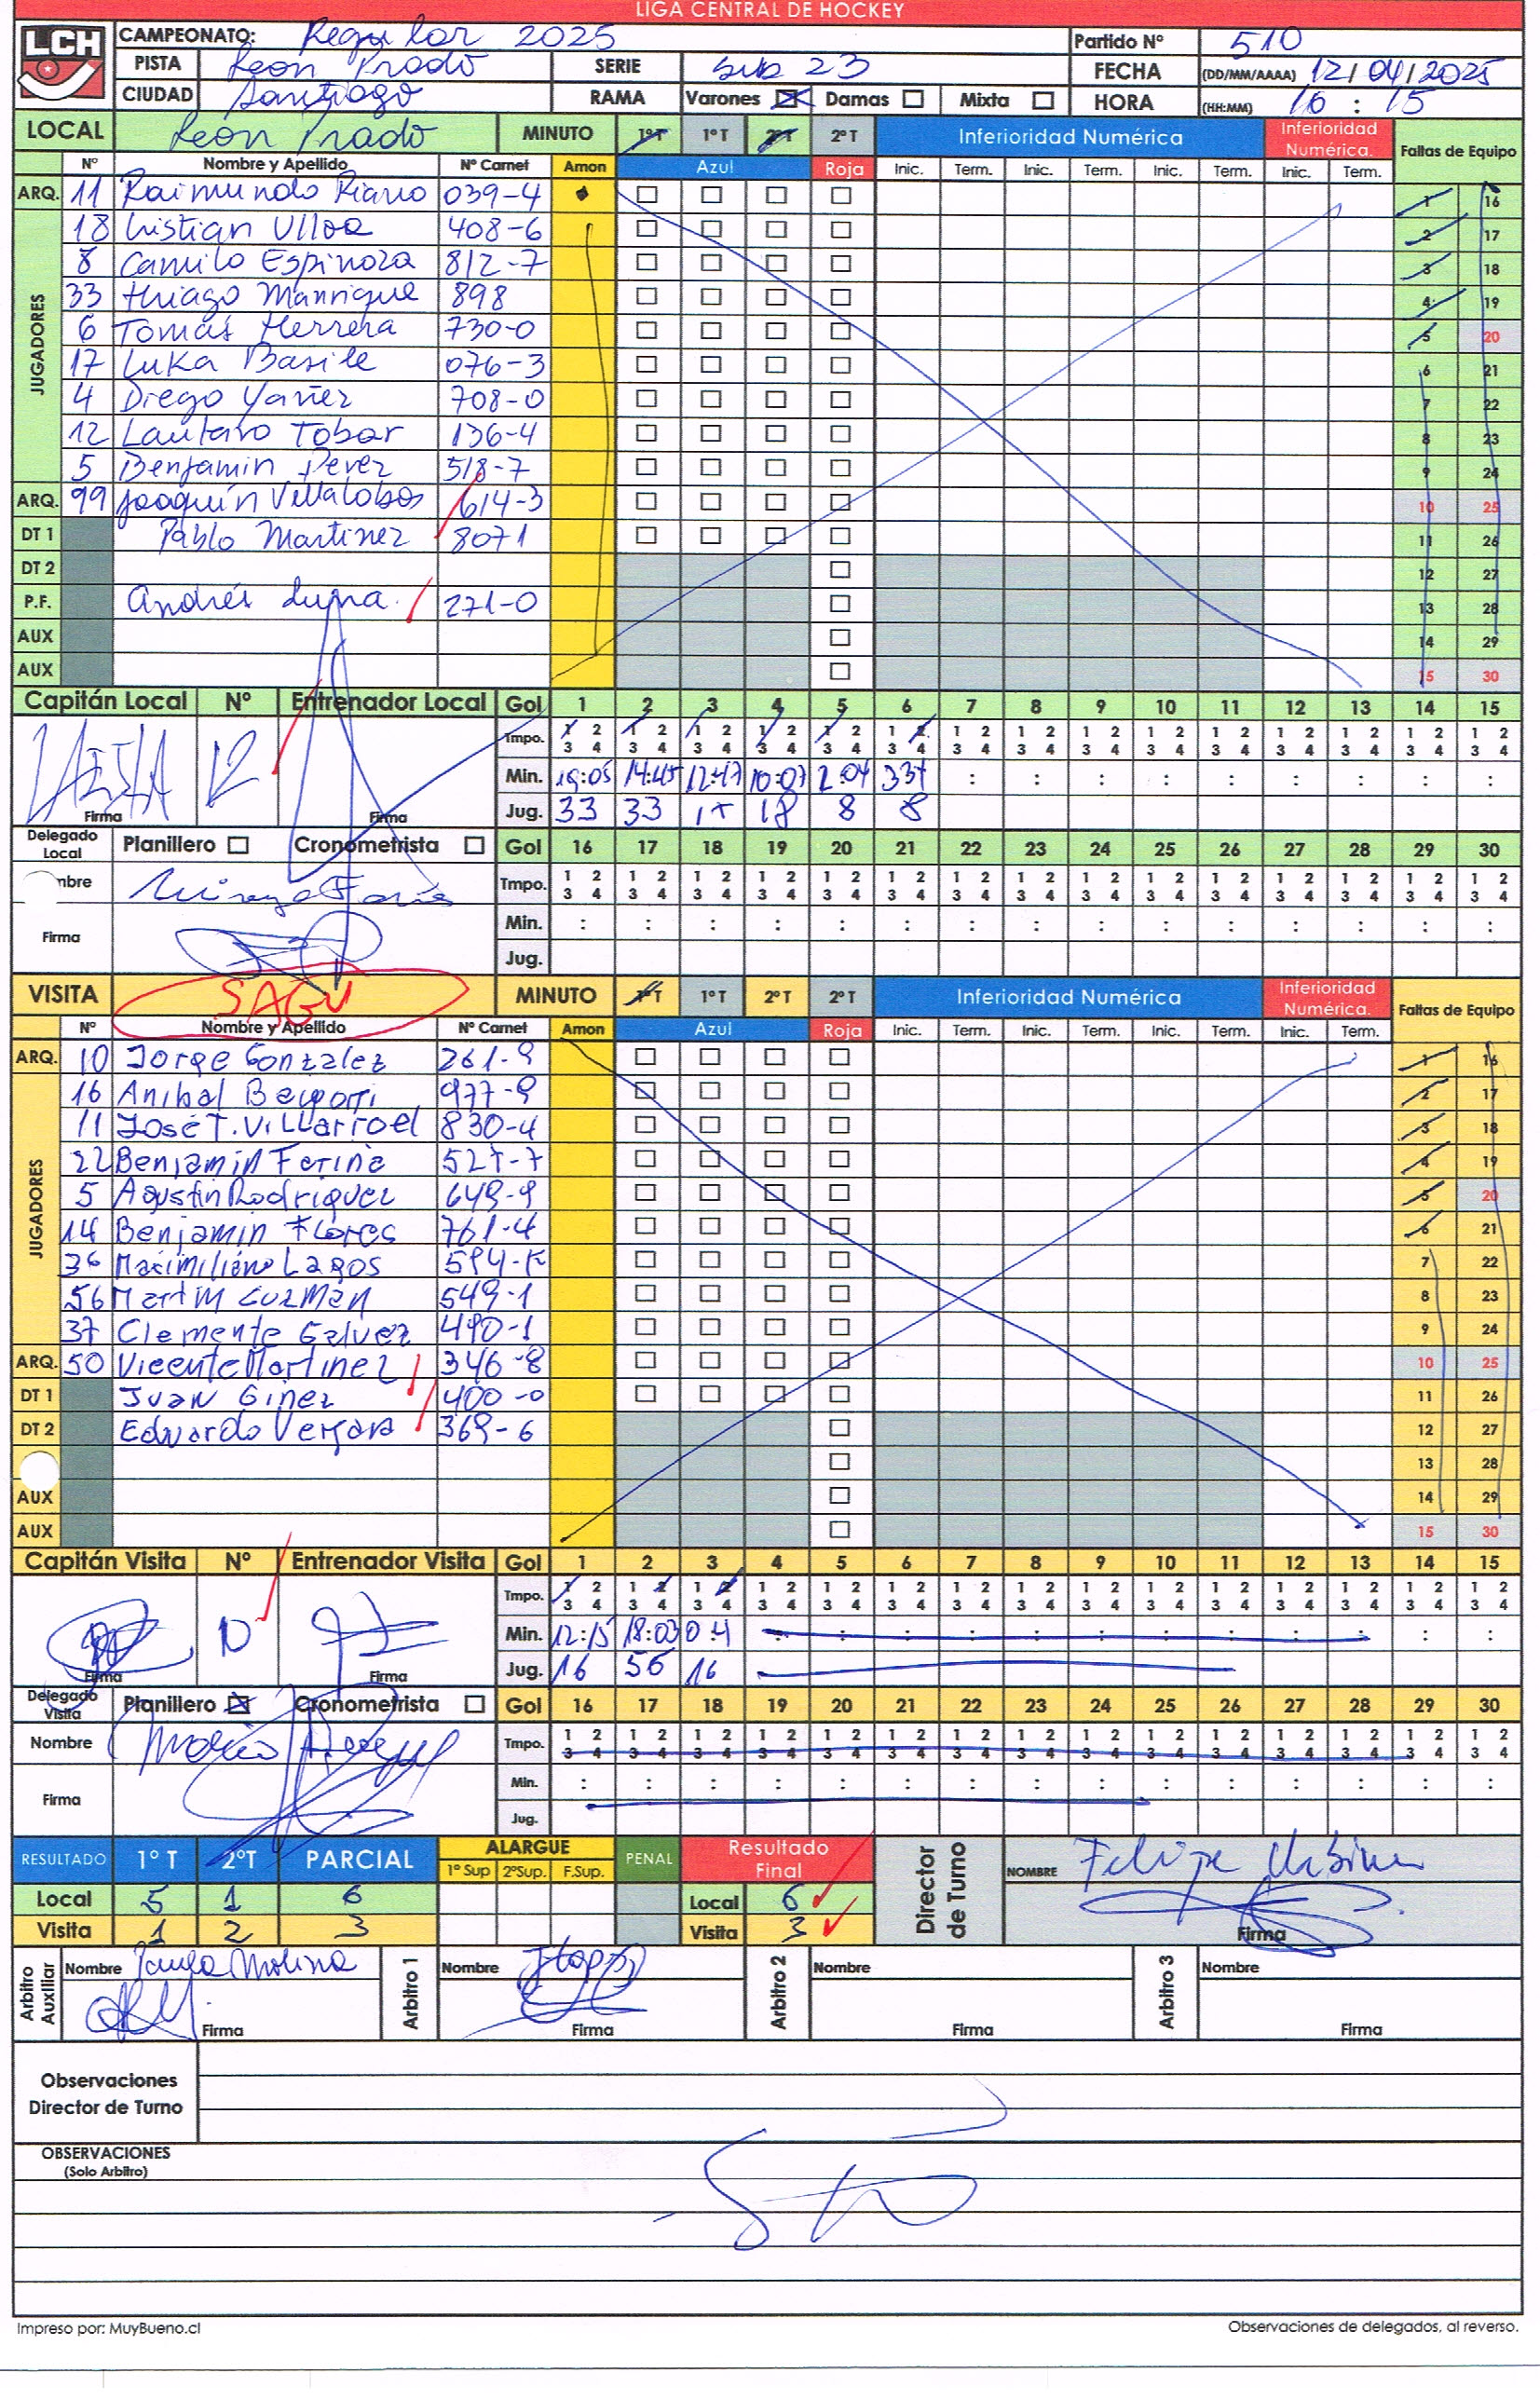 LIGA CENTRAL DE HOCKEY
LCH
CAMPEONATO: Regular 2025 Partido Nº 510
PISTA Leon Prado SERIE Sub 23 FECHA (DD/MM/AAAA) 12/04/2025
CIUDAD Santiago RAMA Varones Damas Mixta HORA (HH:MM) 16:15
LOCAL Leon Prado MINUTO 1ºT 1ºT 2ºT 2ºT Inferioridad Numérica Inferioridad Numérica. Faltas de Equipo
Nº Nombre y Apellido Nº Carnet Amon Azul Roja Inic. Term. Inic. Term. Inic. Term. Inic. Term.
JUGADORES
ARQ. 11 Raimundo Riano 039-4 1 16
18 Cristian Ulloa 408-6 2 17
8 Camilo Espinoza 812-7 3 18
33 Thiago Manrique 898 4 19
6 Tomás Herrera 730-0 5 20
17 Luka Basile 076-3 6 21
4 Diego Yañez 708-0 7 22
12 Lautaro Tobar 136-4 8 23
5 Benjamin Perez 518-7 9 24
ARQ. 99 Joaquín Villalobos 614-3 10 25
DT 1 Pablo Martinez 8071 11 26
DT 2 12 27
P.F. Andrés Luna. 271-0 13 28
AUX 14 29
AUX 15 30
Capitán Local Nº Entrenador Local Gol 1 2 3 4 5 6 7 8 9 10 11 12 13 14 15
Tmpo. 1 2 1 2 1 2 1 2 1 2 1 2 1 2 1 2 1 2 1 2 1 2 1 2 1 2 1 2 1 2
3 4 3 4 3 4 3 4 3 4 3 4 3 4 3 4 3 4 3 4 3 4 3 4 3 4 3 4 3 4
12 Min. 19:05 14:45 12:47 10:07 2:04 337 : : : : : : : : :
Firma Firma Jug. 33 33 17 18 8 8
Delegado Local Planillero Cronometrista Gol 16 17 18 19 20 21 22 23 24 25 26 27 28 29 30
mbre Tmpo. 1 2 1 2 1 2 1 2 1 2 1 2 1 2 1 2 1 2 1 2 1 2 1 2 1 2 1 2 1 2
3 4 3 4 3 4 3 4 3 4 3 4 3 4 3 4 3 4 3 4 3 4 3 4 3 4 3 4 3 4
Firma Min. : : : : : : : : : : : : : : :
Jug.
VISITA SAGU MINUTO 1ºT 1ºT 2ºT 2ºT Inferioridad Numérica Inferioridad Numérica. Faltas de Equipo
Nº Nombre y Apellido Nº Carnet Amon Azul Roja Inic. Term. Inic. Term. Inic. Term. Inic. Term.
JUGADORES
ARQ. 10 Jorge Gonzalez 261-9 1 16
16 Anibal 977-9 2 17
11 José T. Villarroel 830-4 3 18
22 Benjamin Farine 527-7 4 19
5 Agustin Rodriguez 649-9 5 20
14 Benjamin Flores 761-4 6 21
36 Maximiliano Lagos 594-K 7 22
56 Martin Guzman 549-1 8 23
37 Clemente Galvez 490-1 9 24
ARQ. 50 Vicente Martinez 346-8 10 25
DT 1 Juan Giner 400-0 11 26
DT 2 Eduardo Vergara 369-6 12 27
13 28
AUX 14 29
AUX 15 30
Capitán Visita Nº Entrenador Visita Gol 1 2 3 4 5 6 7 8 9 10 11 12 13 14 15
Tmpo. 1 2 1 2 1 2 1 2 1 2 1 2 1 2 1 2 1 2 1 2 1 2 1 2 1 2 1 2 1 2
3 4 3 4 3 4 3 4 3 4 3 4 3 4 3 4 3 4 3 4 3 4 3 4 3 4 3 4 3 4
10 Min. 12:15 18:03 0:4 : : : : : : : : : : : :
Firma Firma Jug. 16 56 16
Delegado Visita Planillero Cronometrista Gol 16 17 18 19 20 21 22 23 24 25 26 27 28 29 30
Nombre Tmpo. 1 2 1 2 1 2 1 2 1 2 1 2 1 2 1 2 1 2 1 2 1 2 1 2 1 2 1 2 1 2
3 4 3 4 3 4 3 4 3 4 3 4 3 4 3 4 3 4 3 4 3 4 3 4 3 4 3 4 3 4
Firma Min. : : : : : : : : : : : : : : :
Jug.
RESULTADO 1º T 2ºT PARCIAL ALARGUE PENAL Resultado Final Director de Turno NOMBRE Felipe
1º Sup 2ºSup. F.Sup.
Local 5 1 6 Local 6
Visita 1 2 3 Visita 3 Firma
Arbitro Auxiliar Nombre Paula Molina Arbitro 1 Nombre Arbitro 2 Nombre Arbitro 3 Nombre
Firma Firma Firma Firma
Observaciones
Director de Turno
OBSERVACIONES
(Solo Arbitro)
Impreso por: MuyBueno.cl Observaciones de delegados, al reverso.